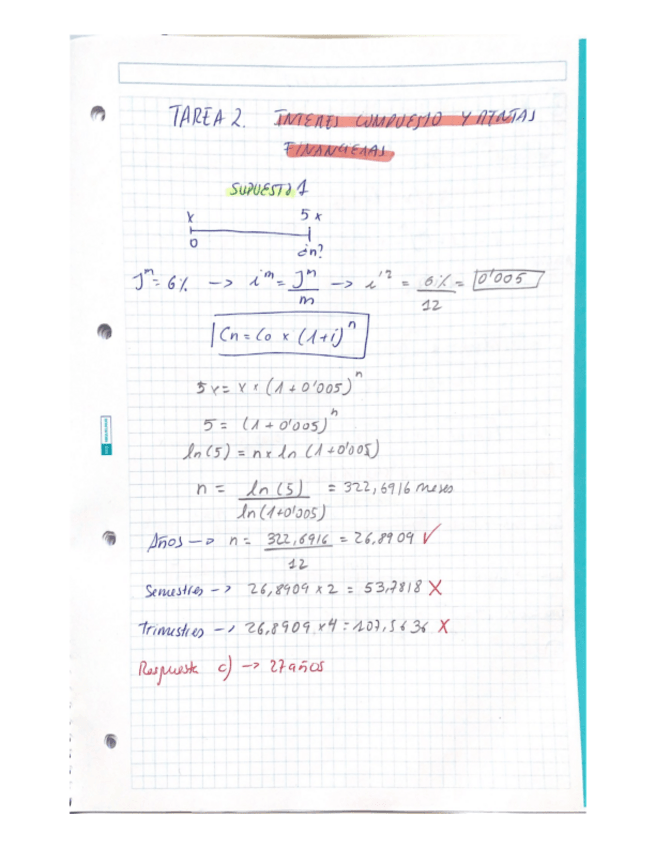 TAREA 2. INTERES COMPUESTO Y RENTAS
FINANCIERAS
SUPUESTO 1
x 5 x
0 ¿n?
J^m = 6% -> i^m = J^m / m -> i^12 = 6% / 12 = 0'005
Cn = Co x (1+i)^n
5x = x x (1 + 0'005)^n
5 = (1 + 0'005)^n
ln(5) = n x ln (1+0'005)
n = ln(5) / ln(1+0'005) = 322,6916 meses
Años -> n = 322,6916 / 12 = 26,8909 ✓
Semestres -> 26,8909 x 2 = 53,7818 X
Trimestres -> 26,8909 x 4 = 107,5636 X
Respuesta c) -> 27 años